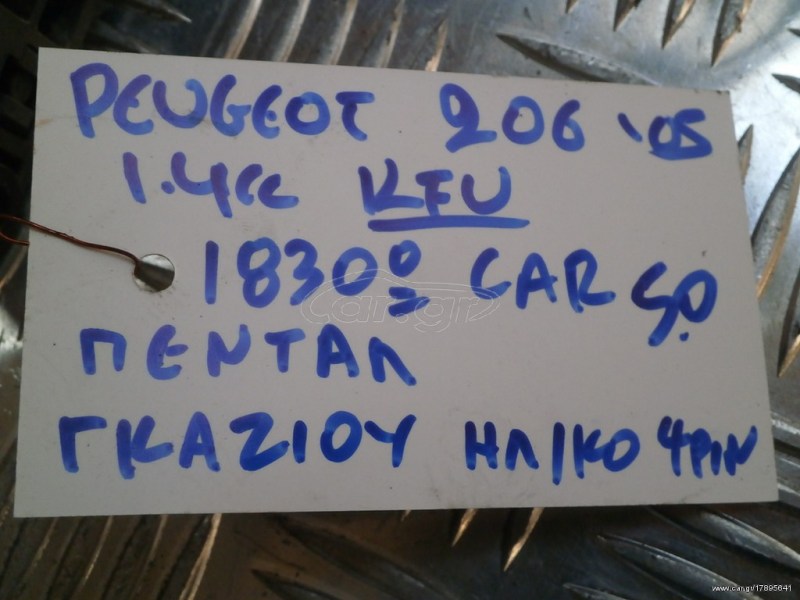 PEUGEOT 206 '05
1.4cc KFU
1830º CAR S.O
ΠΕΝΤΑΛ
ΓΚΑΖΙΟΥ ΗΛ/ΚΟ 4PIN
car.gr
www.car.gr/17895641